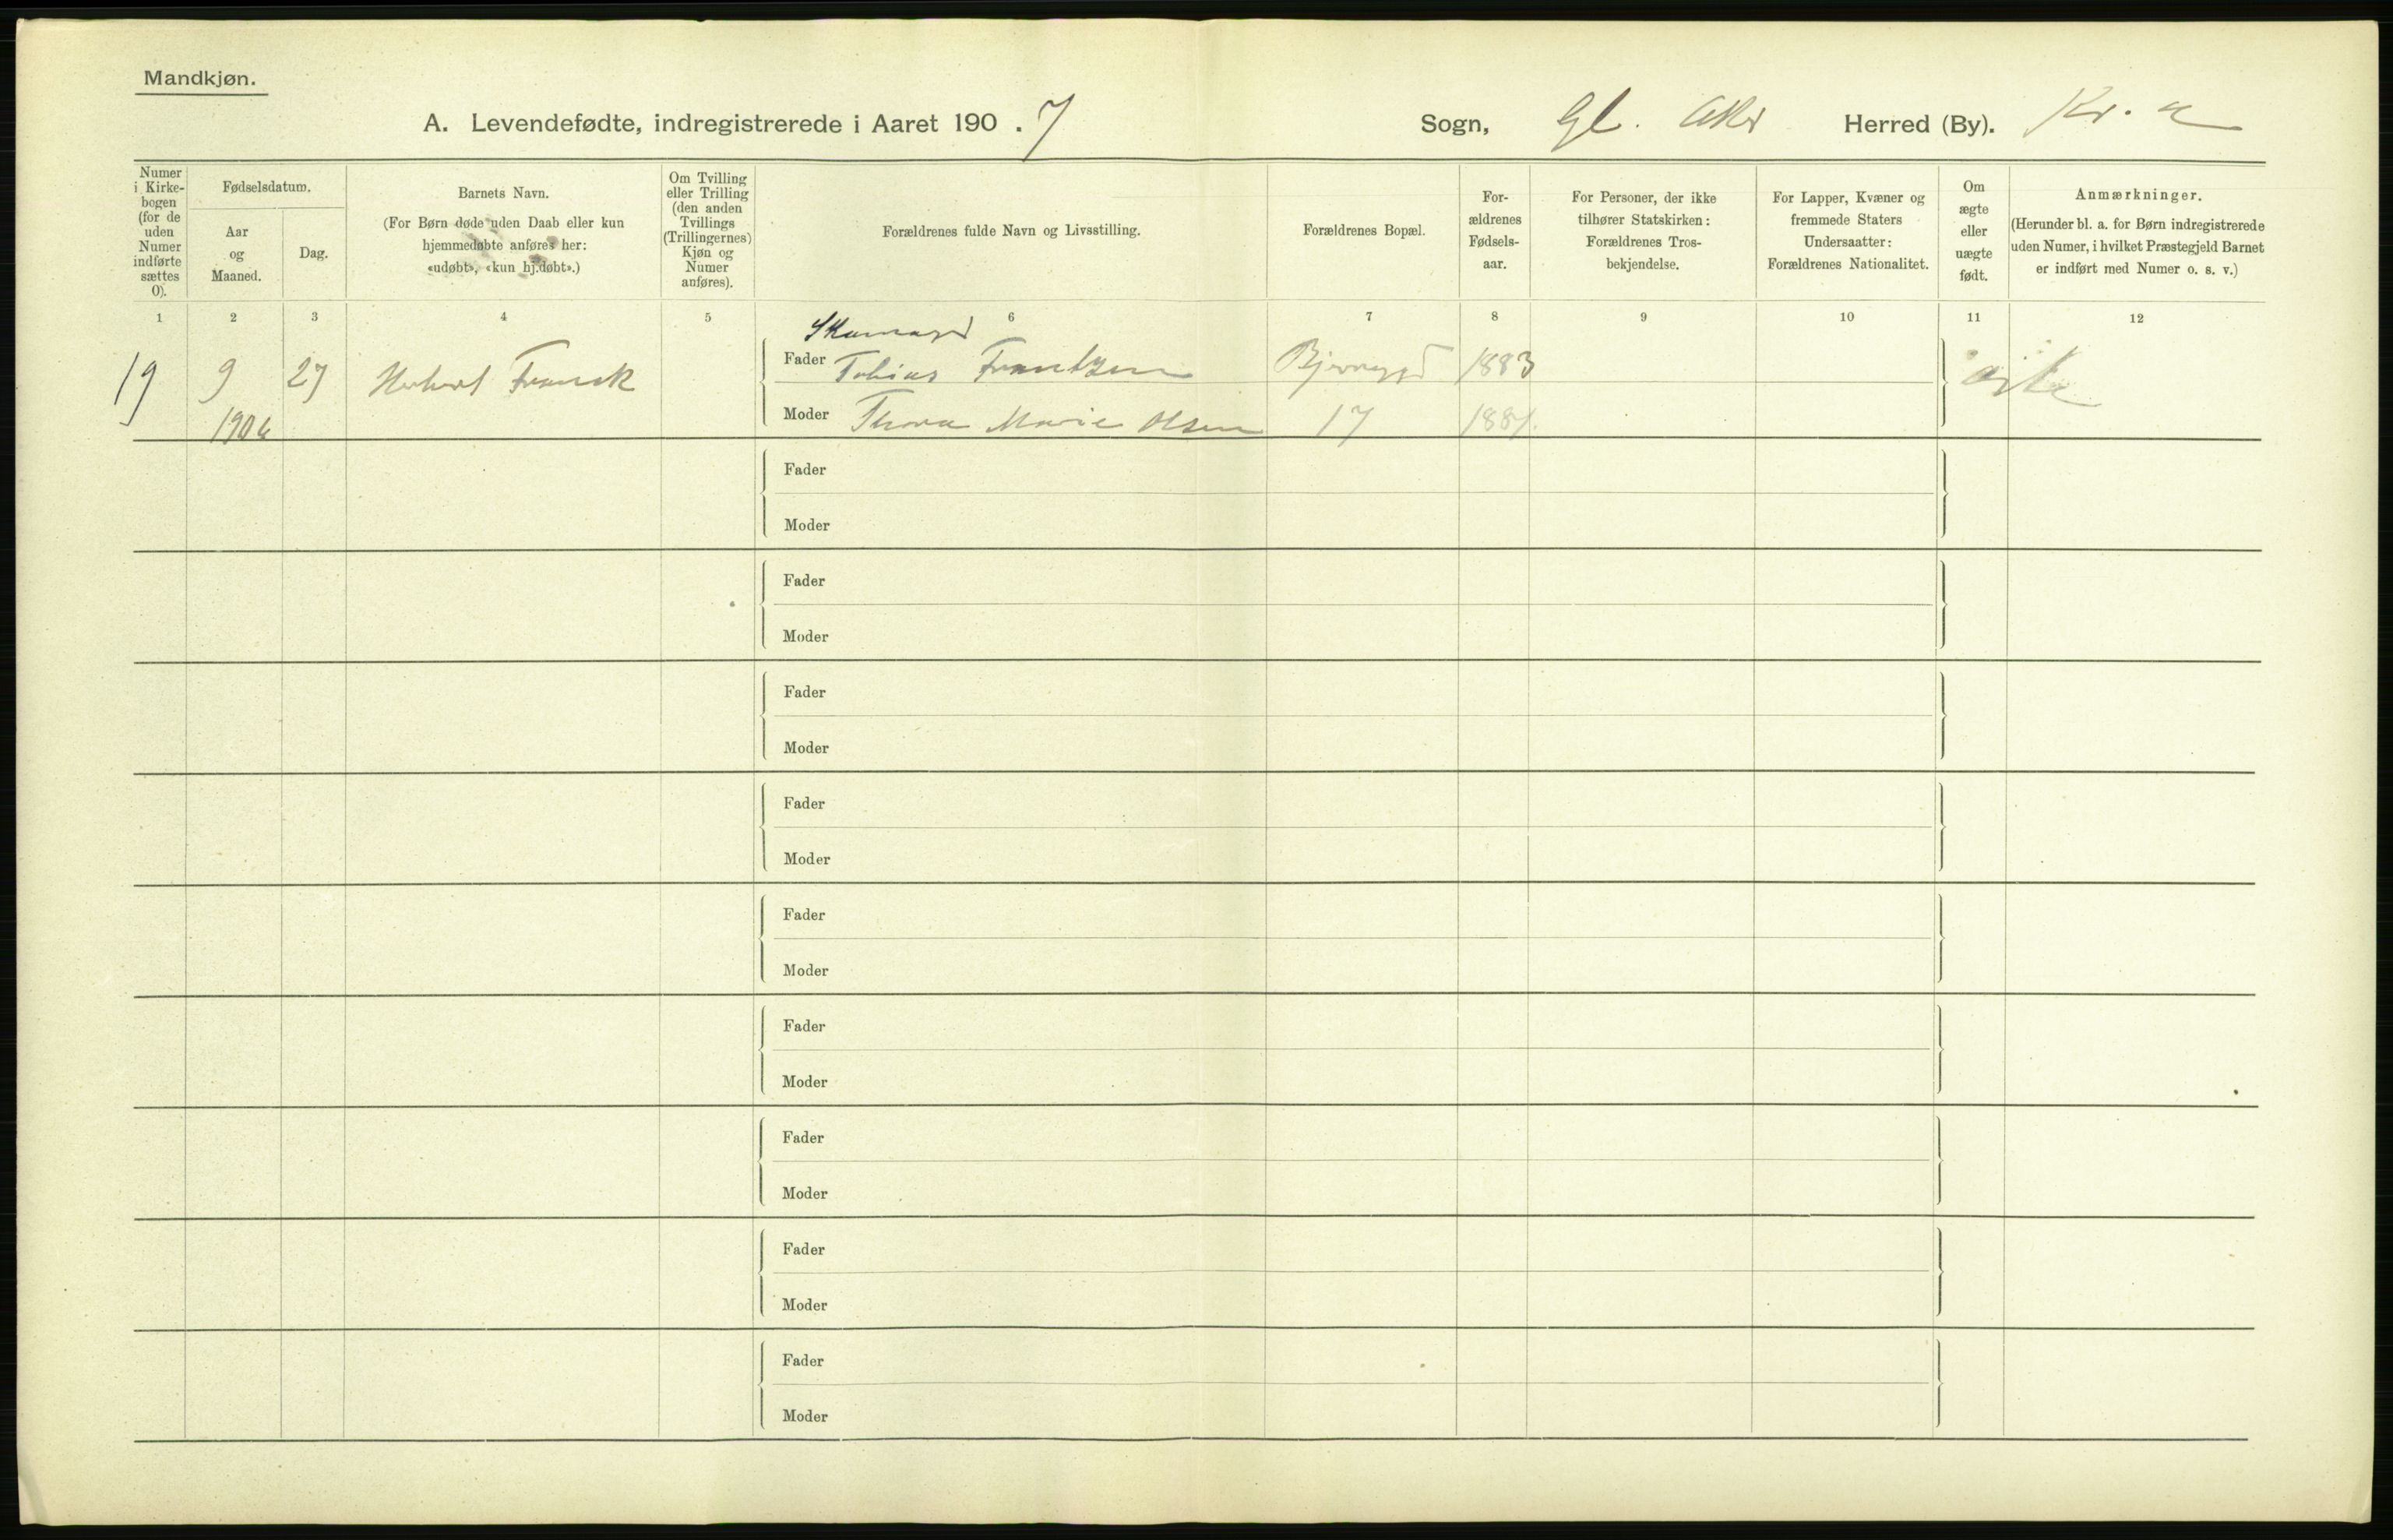 Mandkjøn.
A. Levendefødte, indregistrerede i Aaret 190 . 7
Sogn, Gl. Aker Herred (By). Kr. a
Numer i Kirke-bogen (for de uden Numer indførte sættes 0).
Fødselsdatum.
Aar og Maaned.
Dag.
Barnets Navn.
(For Børn døde uden Daab eller kun
hjemmedøbte anføres her:
«udøbt», «kun hj.døbt».)
Om Tvilling
eller Trilling
(den anden
Tvillings
(Trillingernes)
Kjøn og
Numer
anføres).
Forældrenes fulde Navn og Livsstilling.
Forældrenes Bopæl.
For-
ældrenes
Fødsels-
aar.
For Personer, der ikke
tilhører Statskirken:
Forældrenes Tros-
bekjendelse.
For Lapper, Kvæner og
fremmede Staters
Undersaatter:
Forældrenes Nationalitet.
Om
ægte
eller
uægte
født.
Anmærkninger.
(Herunder bl. a. for Børn indregistrerede
uden Numer, i hvilket Præstegjeld Barnet
er indført med Numer o. s. v.)
1 2 3 4 5 6 7 8 9 10 11 12
19 9 27 Herbert Franck Fader Tobias Frantzen 1883 ægte
1906 Moder Thora Marie Olsen 17 1881.
Fader
Moder
Fader
Moder
Fader
Moder
Fader
Moder
Fader
Moder
Fader
Moder
Fader
Moder
Fader
Moder
Fader
Moder